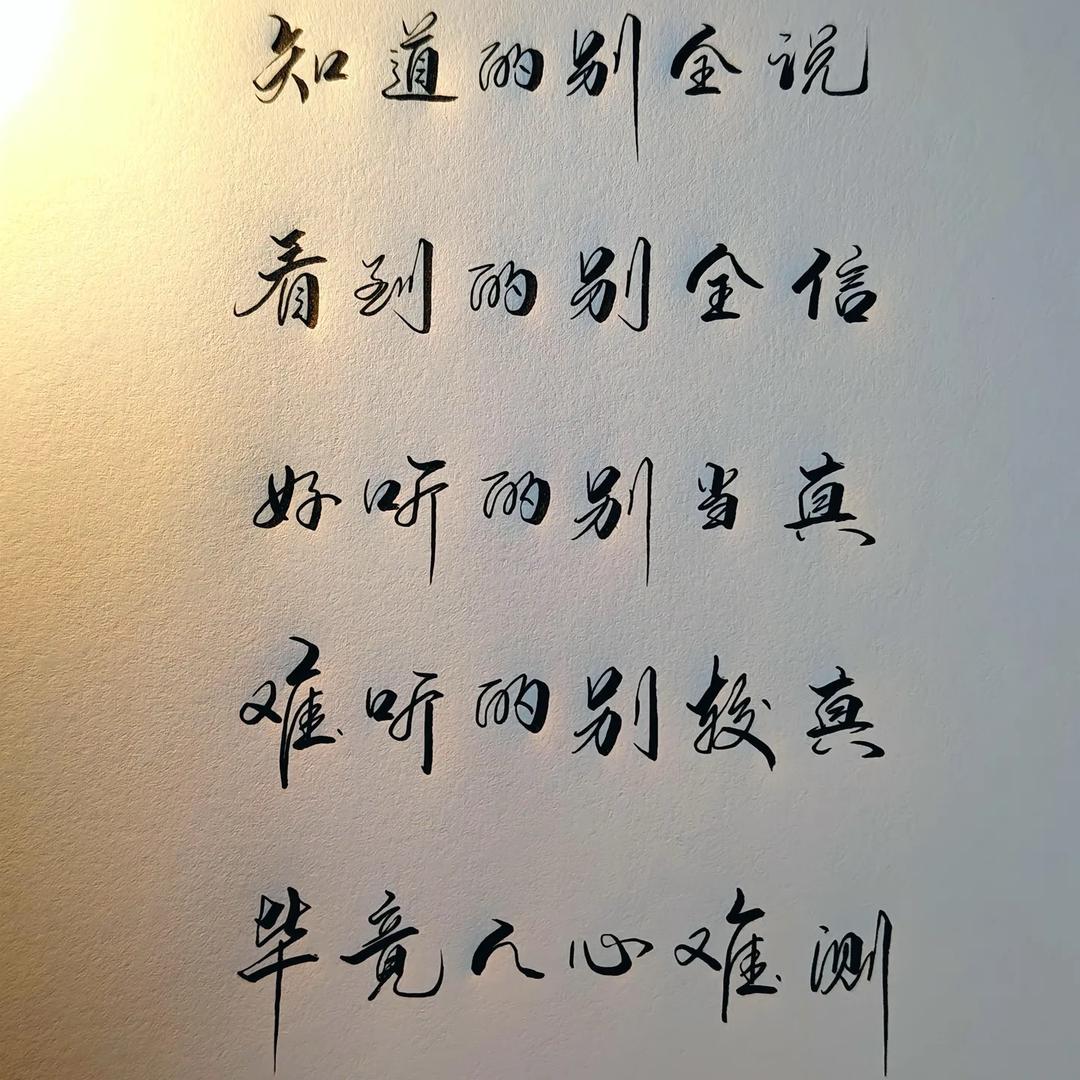 知道的别全说
看到的别全信
好听的别当真
难听的别较真
毕竟人心难测